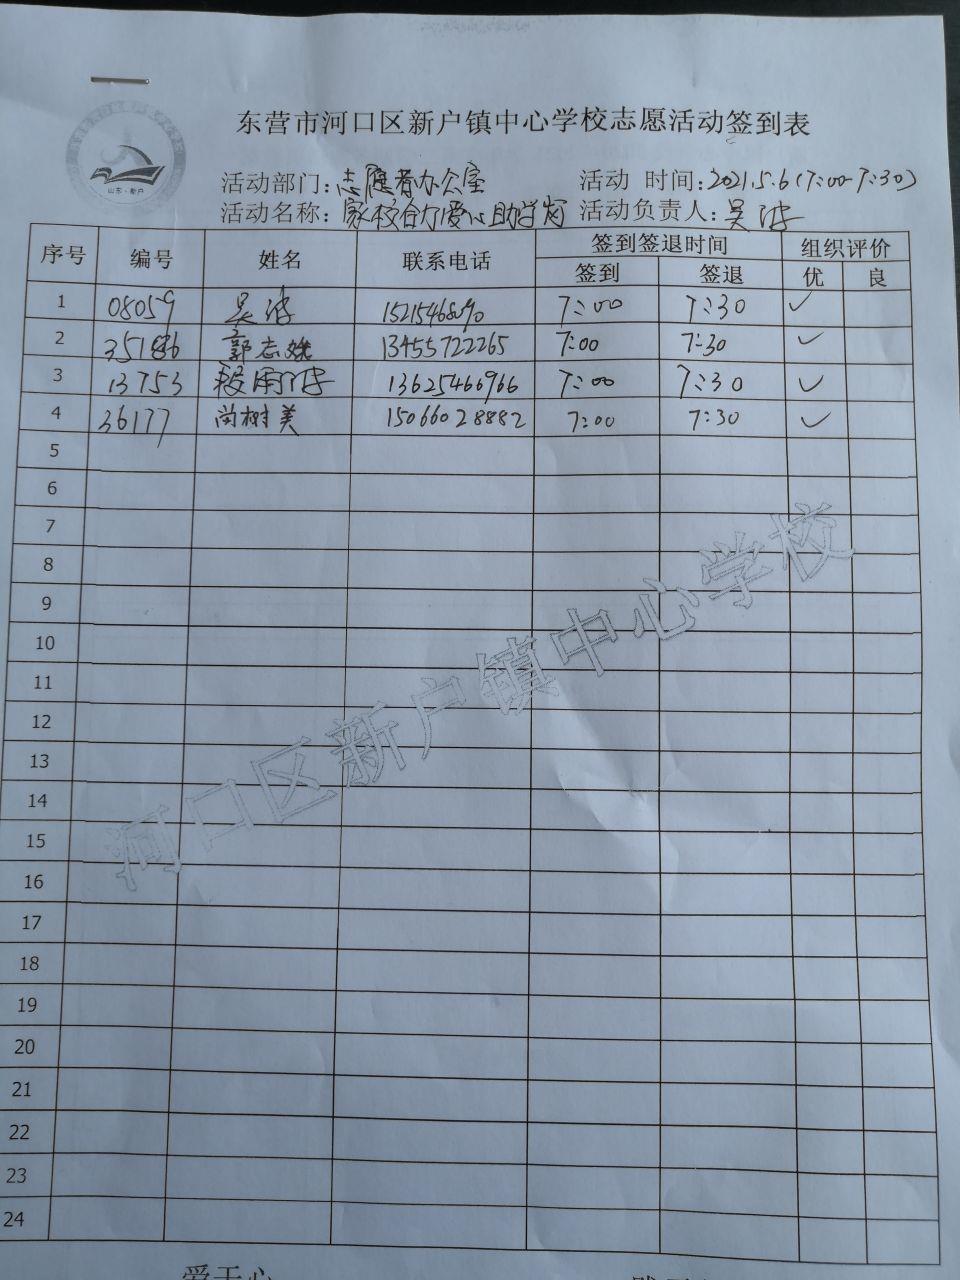 东营市河口区新户镇中心学校志愿活动签到表
活动部门:志愿者办公室 活动 时间:2021.5.6(7:00-7:30)
活动名称:家校合力爱心助学岗 活动负责人:吴
序号 编号 姓名 联系电话 签到签退时间 组织评价
签到 签退 优 良
1 08059 吴 7:00 7:30 ✓
2 郭志 13455722265 7:00 7:30 ✓
3 13753 13625466966 7:00 7:30 ✓
4 36177 尚树美 15066028882 7:00 7:30 ✓
5
6
7
8
9
10
11
12
13
14
15
16
17
18
19
20
21
22
23
24
河口区新户镇中心学校
山东·新户
爱于心